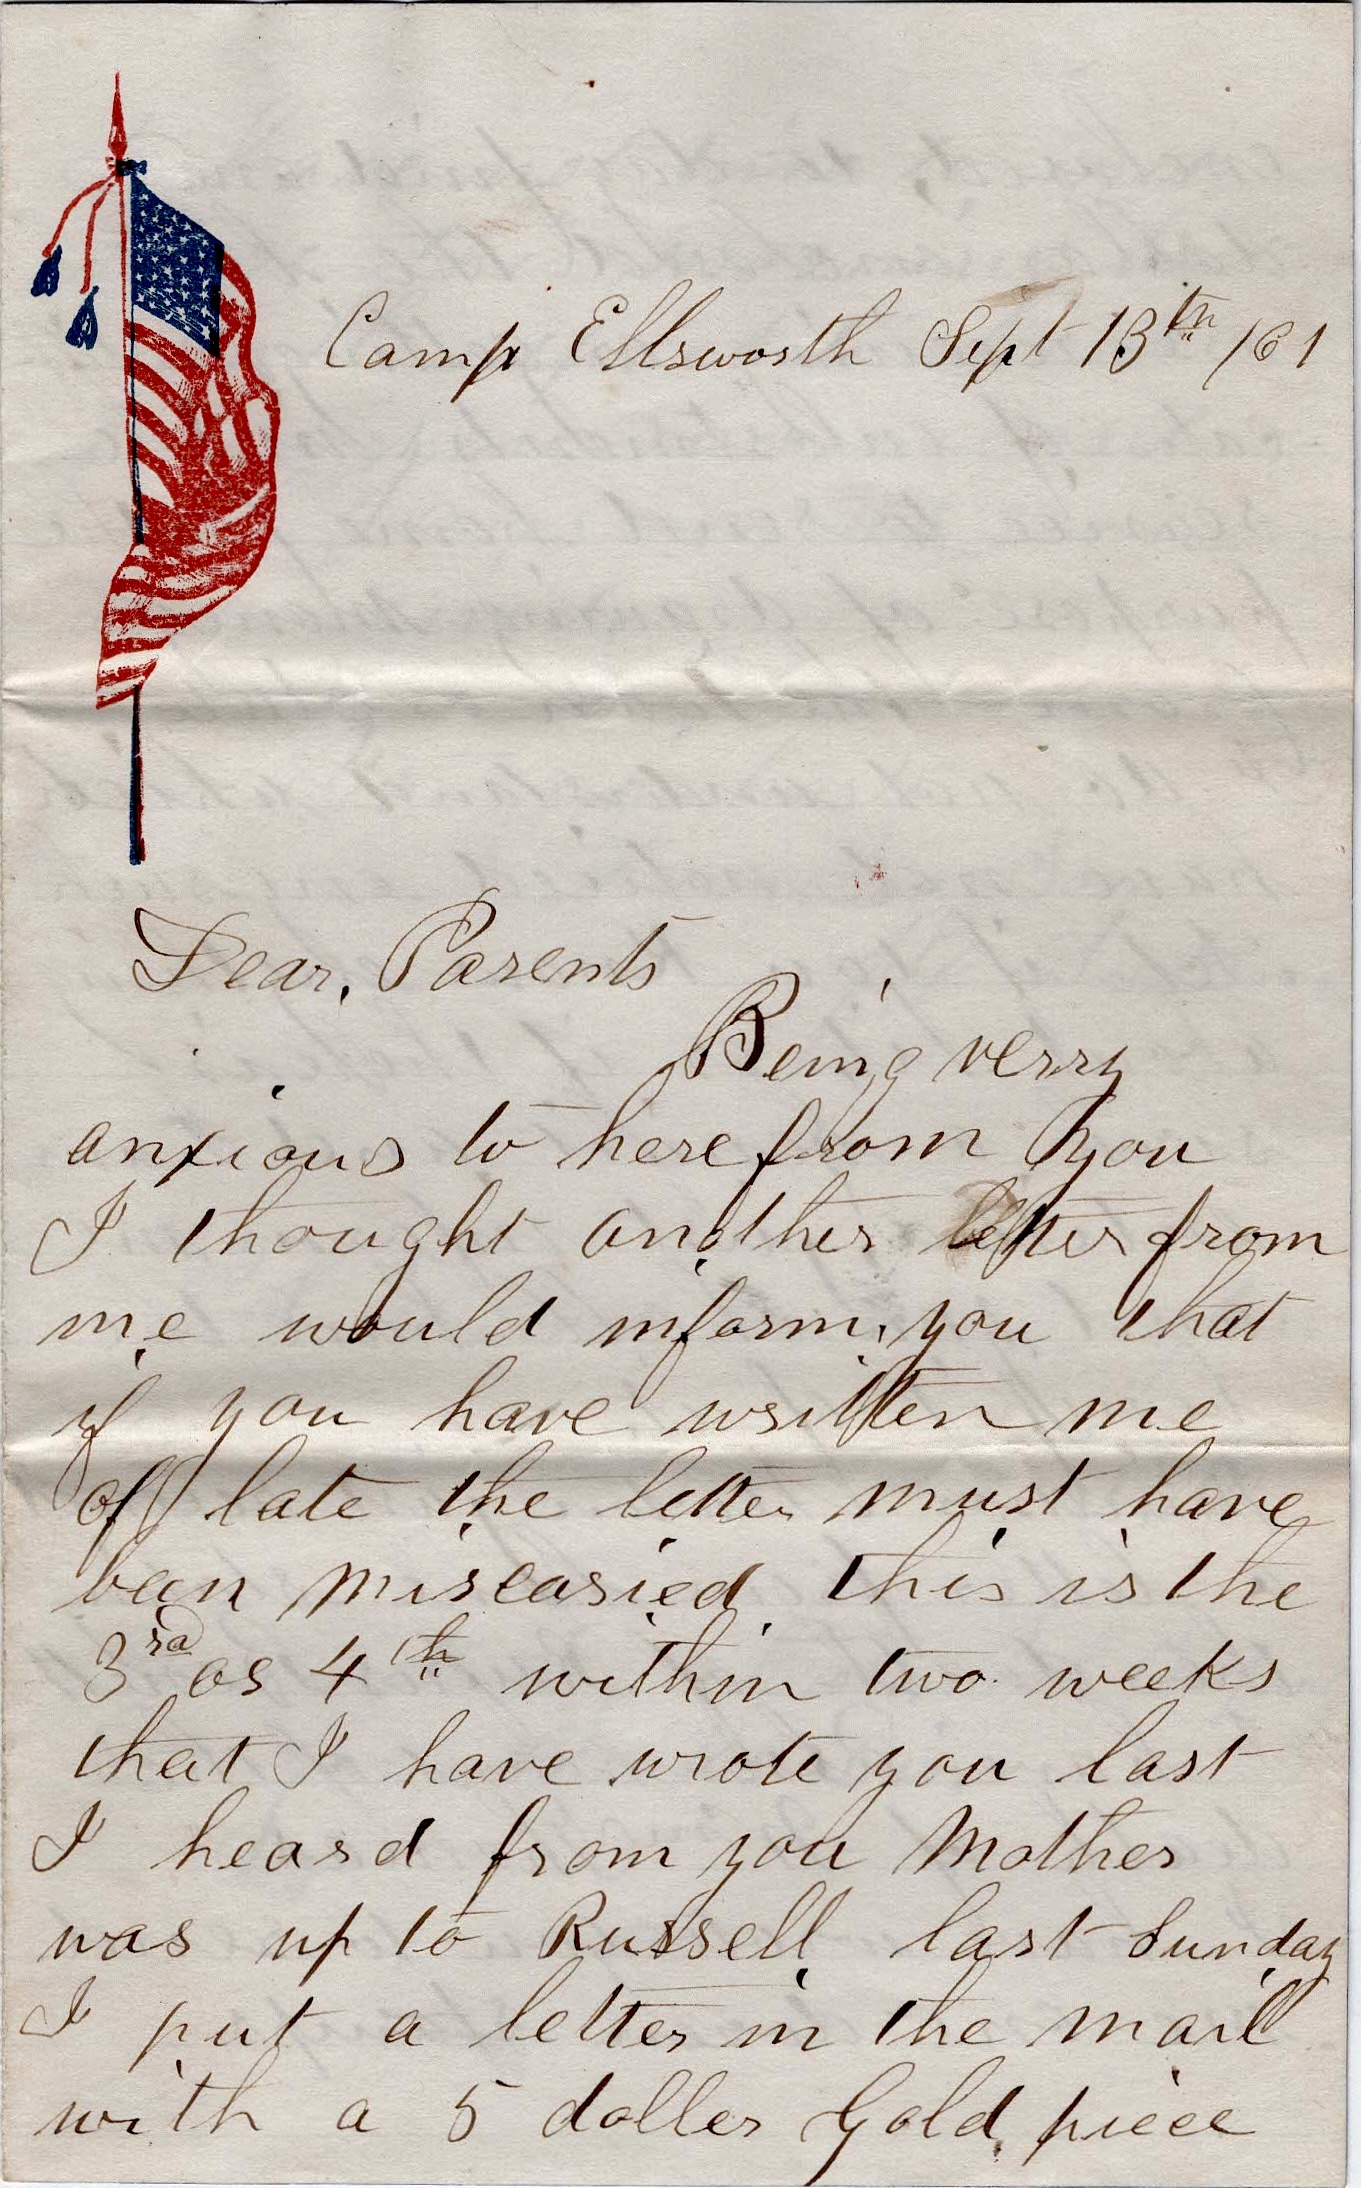 Camp Ellsworth Sept 13th /61
Dear, Parents
Being verry
anxious to here from you
I thought another letter from
me would inform you that
if you have written me
of late the letter must have
been miscaried this is the
3rd or 4th within two weeks
that I have wrote you last
I heard from you Mother
was up to Russell last Sunday
I put a letter in the mail
with a 5 doller Gold piece